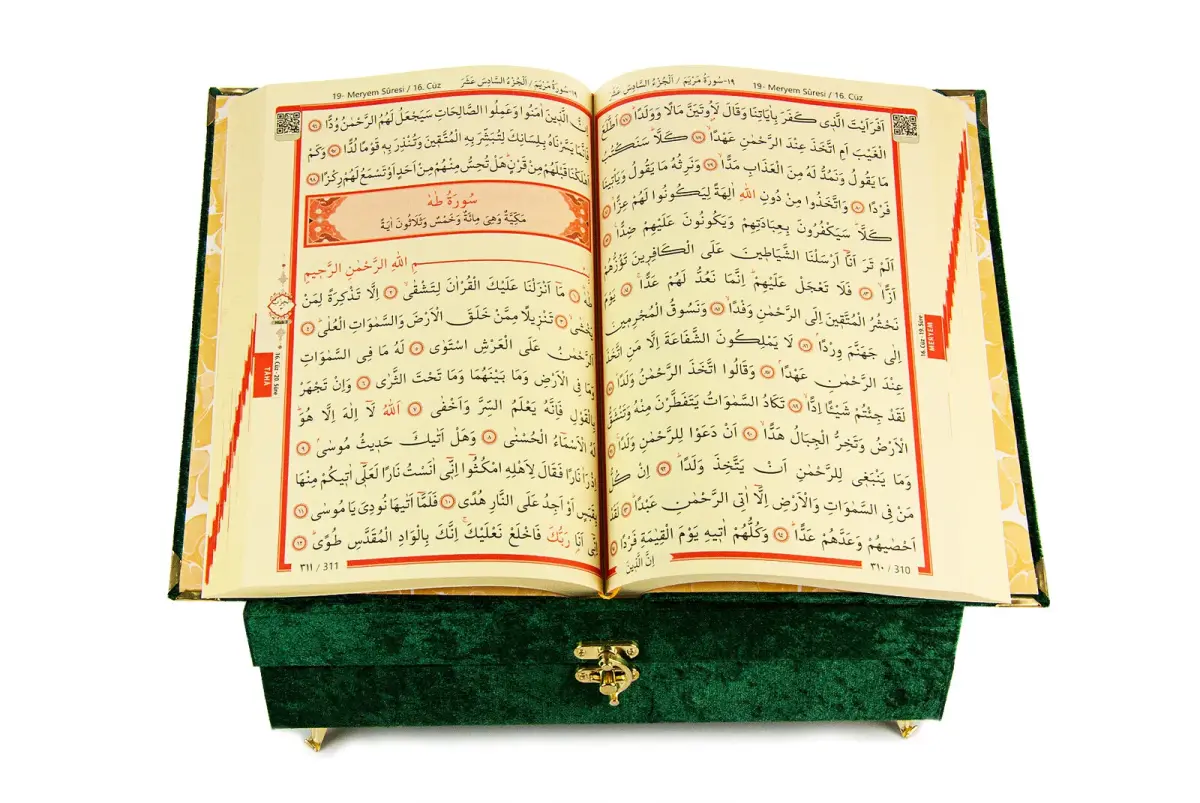 19- Meryem Sûresi / 16. Cüz
١٩-سُورَةُ مَرْيَمَ / اَلْجُزْءُ السَّادِسَ عَشَرَ
اَفَرَاَيْتَ الَّذٖى كَفَرَ بِاٰيَاتِنَا وَقَالَ لَاُو۫تَيَنَّ مَالًا وَوَلَدًاؕ ﴿٧٧﴾ اَطَّلَعَ
الْغَيْبَ اَمِ اتَّخَذَ عِنْدَ الرَّحْمٰنِ عَهْدًاۙ ﴿٧٨﴾ كَلَّاؕ سَنَكْتُبُ
مَا يَقُولُ وَنَمُدُّ لَهُ مِنَ الْعَذَابِ مَدًّاۙ ﴿٧٩﴾ وَنَرِثُهُ مَا يَقُولُ وَيَأْتٖينَا
فَرْدًا ﴿٨٠﴾ وَاتَّخَذُوا مِنْ دُونِ اللّٰهِ اٰلِهَةً لِيَكُونُوا لَهُمْ عِزًّاۙ ﴿٨١﴾
كَلَّاؕ سَيَكْفُرُونَ بِعِبَادَتِهِمْ وَيَكُونُونَ عَلَيْهِمْ ضِدًّا ﴿٨٢﴾
اَلَمْ تَرَ اَنَّٓا اَرْسَلْنَا الشَّيَاطٖينَ عَلَى الْكَافِرٖينَ تَؤُزُّهُمْ
اَزًّاۙ ﴿٨٣﴾ فَلَا تَعْجَلْ عَلَيْهِمْؕ اِنَّمَا نَعُدُّ لَهُمْ عَدًّاۚ ﴿٨٤﴾ يَوْمَ
نَحْشُرُ الْمُتَّقٖينَ اِلَى الرَّحْمٰنِ وَفْدًاۙ ﴿٨٥﴾ وَنَسُوقُ الْمُجْرِمٖينَ
اِلٰى جَهَنَّمَ وِرْدًاۢ ﴿٨٦﴾ لَا يَمْلِكُونَ الشَّفَاعَةَ اِلَّا مَنِ اتَّخَذَ
عِنْدَ الرَّحْمٰنِ عَهْدًاۢ ﴿٨٧﴾ وَقَالُوا اتَّخَذَ الرَّحْمٰنُ وَلَدًاؕ ﴿٨٨﴾
لَقَدْ جِئْتُمْ شَيْـًٔا اِدًّاۙ ﴿٨٩﴾ تَكَادُ السَّمٰوَاتُ يَتَفَطَّرْنَ مِنْهُ وَتَنْشَقُّ
الْاَرْضُ وَتَخِرُّ الْجِبَالُ هَدًّاۙ ﴿٩٠﴾ اَنْ دَعَوْا لِلرَّحْمٰنِ وَلَدًاۚ ﴿٩١﴾
وَمَا يَنْبَغٖى لِلرَّحْمٰنِ اَنْ يَتَّخِذَ وَلَدًاؕ ﴿٩٢﴾ اِنْ كُلُّ
مَنْ فِى السَّمٰوَاتِ وَالْاَرْضِ اِلَّٓا اٰتِى الرَّحْمٰنِ عَبْدًاؕ ﴿٩٣﴾ لَقَدْ
اَحْصٰيهُمْ وَعَدَّهُمْ عَدًّاؕ ﴿٩٤﴾ وَكُلُّهُمْ اٰتٖيهِ يَوْمَ الْقِيٰمَةِ فَرْدًا ﴿٩٥﴾
اِنَّ الَّذٖينَ
٣١٠ / 310
16. Cüz · 19. Sûre
MERYEM
19- Meryem Sûresi / 16. Cüz
١٩-سُورَةُ مَرْيَمَ / اَلْجُزْءُ السَّادِسَ عَشَرَ
اِنَّ الَّذٖينَ اٰمَنُوا وَعَمِلُوا الصَّالِحَاتِ سَيَجْعَلُ لَهُمُ الرَّحْمٰنُ وُدًّا ﴿٩٦﴾
فَاِنَّمَا يَسَّرْنَاهُ بِلِسَانِكَ لِتُبَشِّرَ بِهِ الْمُتَّقٖينَ وَتُنْذِرَ بِهٖ قَوْمًا لُدًّا ﴿٩٧﴾ وَكَمْ
اَهْلَكْنَا قَبْلَهُمْ مِنْ قَرْنٍؕ هَلْ تُحِسُّ مِنْهُمْ مِنْ اَحَدٍ اَوْ تَسْمَعُ لَهُمْ رِكْزًا ﴿٩٨﴾
سُورَةُ طٰهٰ
مَكِّيَّةٌ وَهِىَ مِائَةٌ وَخَمْسٌ وَثَلَاثُونَ اٰيَةً
بِسْمِ اللّٰهِ الرَّحْمٰنِ الرَّحٖيمِ
طٰهٰۚ ﴿١﴾ مَٓا اَنْزَلْنَا عَلَيْكَ الْقُرْاٰنَ لِتَشْقٰىۙ ﴿٢﴾ اِلَّا تَذْكِرَةً لِمَنْ
يَخْشٰىۙ ﴿٣﴾ تَنْزٖيلًا مِمَّنْ خَلَقَ الْاَرْضَ وَالسَّمٰوَاتِ الْعُلٰىؕ ﴿٤﴾
اَلرَّحْمٰنُ عَلَى الْعَرْشِ اسْتَوٰى ﴿٥﴾ لَهُ مَا فِى السَّمٰوَاتِ
وَمَا فِى الْاَرْضِ وَمَا بَيْنَهُمَا وَمَا تَحْتَ الثَّرٰى ﴿٦﴾ وَاِنْ تَجْهَرْ
بِالْقَوْلِ فَاِنَّهُ يَعْلَمُ السِّرَّ وَاَخْفٰى ﴿٧﴾ اَللّٰهُ لَٓا اِلٰهَ اِلَّا هُوَؕ
لَهُ الْاَسْمَٓاءُ الْحُسْنٰى ﴿٨﴾ وَهَلْ اَتٰيكَ حَدٖيثُ مُوسٰىۢ ﴿٩﴾
اِذْ رَاٰ نَارًا فَقَالَ لِاَهْلِهِ امْكُثُٓوا اِنّٖٓى اٰنَسْتُ نَارًا لَعَلّٖٓى اٰتٖيكُمْ مِنْهَا
بِقَبَسٍ اَوْ اَجِدُ عَلَى النَّارِ هُدًى ﴿١٠﴾ فَلَمَّٓا اَتٰيهَا نُودِىَ يَا مُوسٰى ﴿١١﴾
اِنّٖٓى اَنَا۬ رَبُّكَ فَاخْلَعْ نَعْلَيْكَۚ اِنَّكَ بِالْوَادِ الْمُقَدَّسِ طُوًىؕ ﴿١٢﴾
٣١١ / 311
16. Cüz · 20. Sûre
TÂHÂ